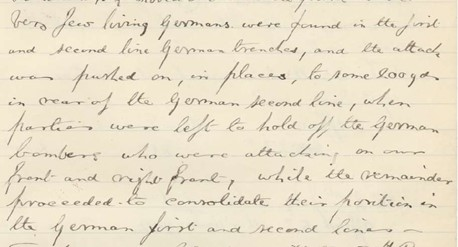 Very few living Germans were found in the first
and second line German trenches, and the attack
was pushed on, in places, to some 200 yds
in rear of the German second line, when
parties were left to hold off the German
bombers who were attacking on our
front and right front, while the remainder
proceeded to consolidate their position in
the German first and second lines -